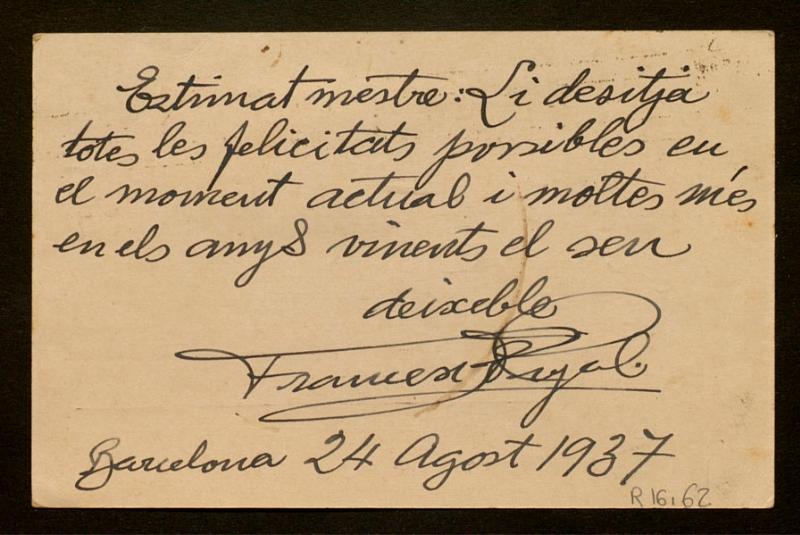 Estimat mestre: Li desitja
totes les felicitats possibles en
el moment actual i moltes més
en els anys vinents el seu
deixeble
Francesc Pujol.
Barcelona 24 Agost 1937
R 16,62